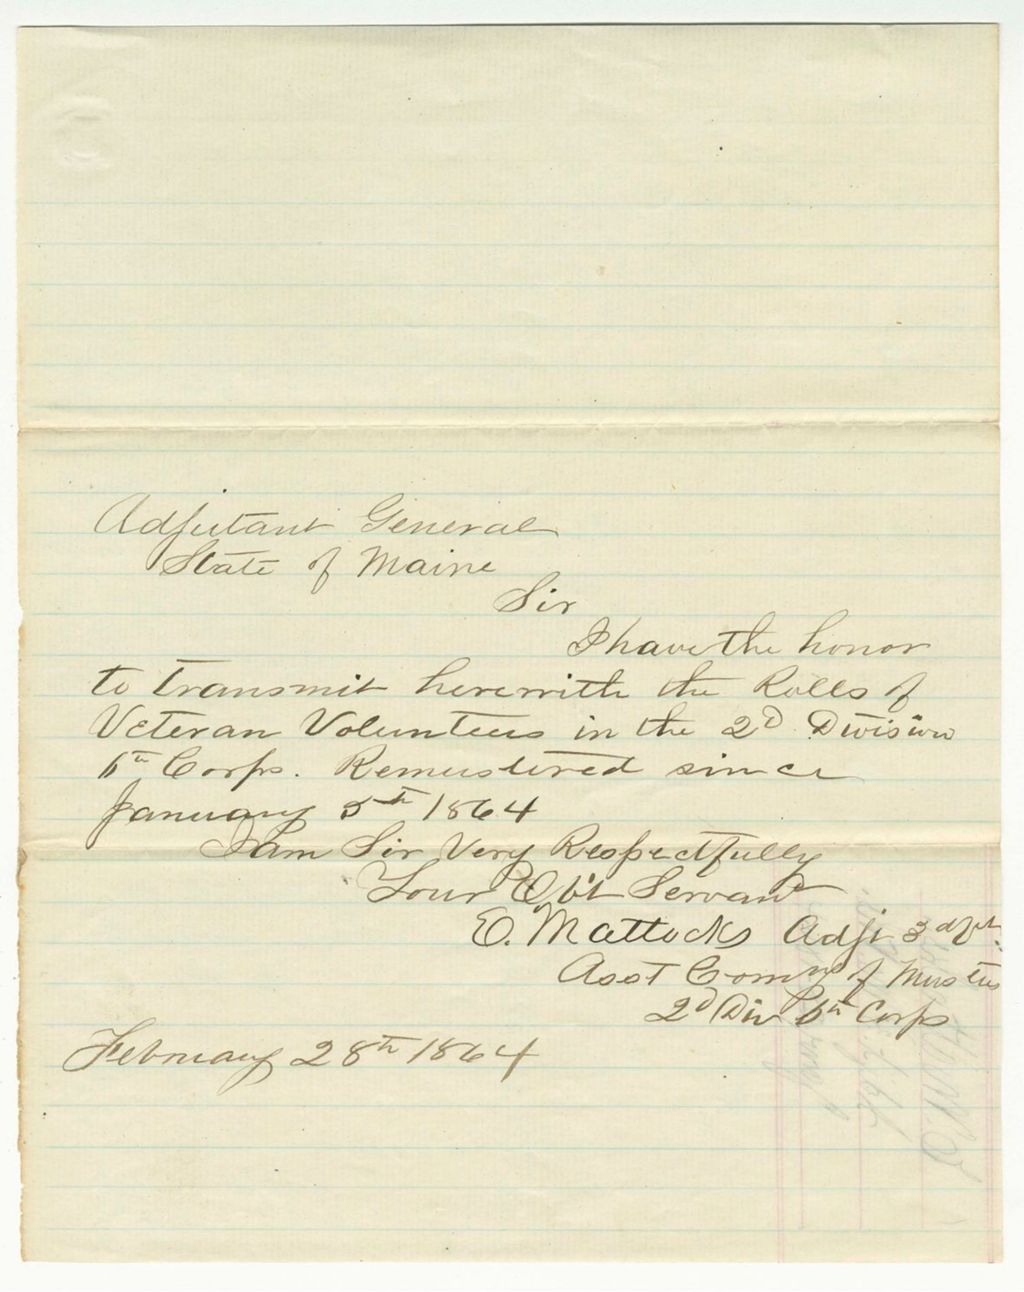 Adjutant General
State of Maine
Sir
I have the honor
to transmit herewith the Rolls of
Veteran Volunteers in the 2D Division
6th Corps. Remustered since
January 5th 1864
I am Sir Very Respectfully
Your Obt Servant
E. Mattocks Adjt 3d
Asst Comy of Musters
2D Div 6th Corps
February 28th 1864